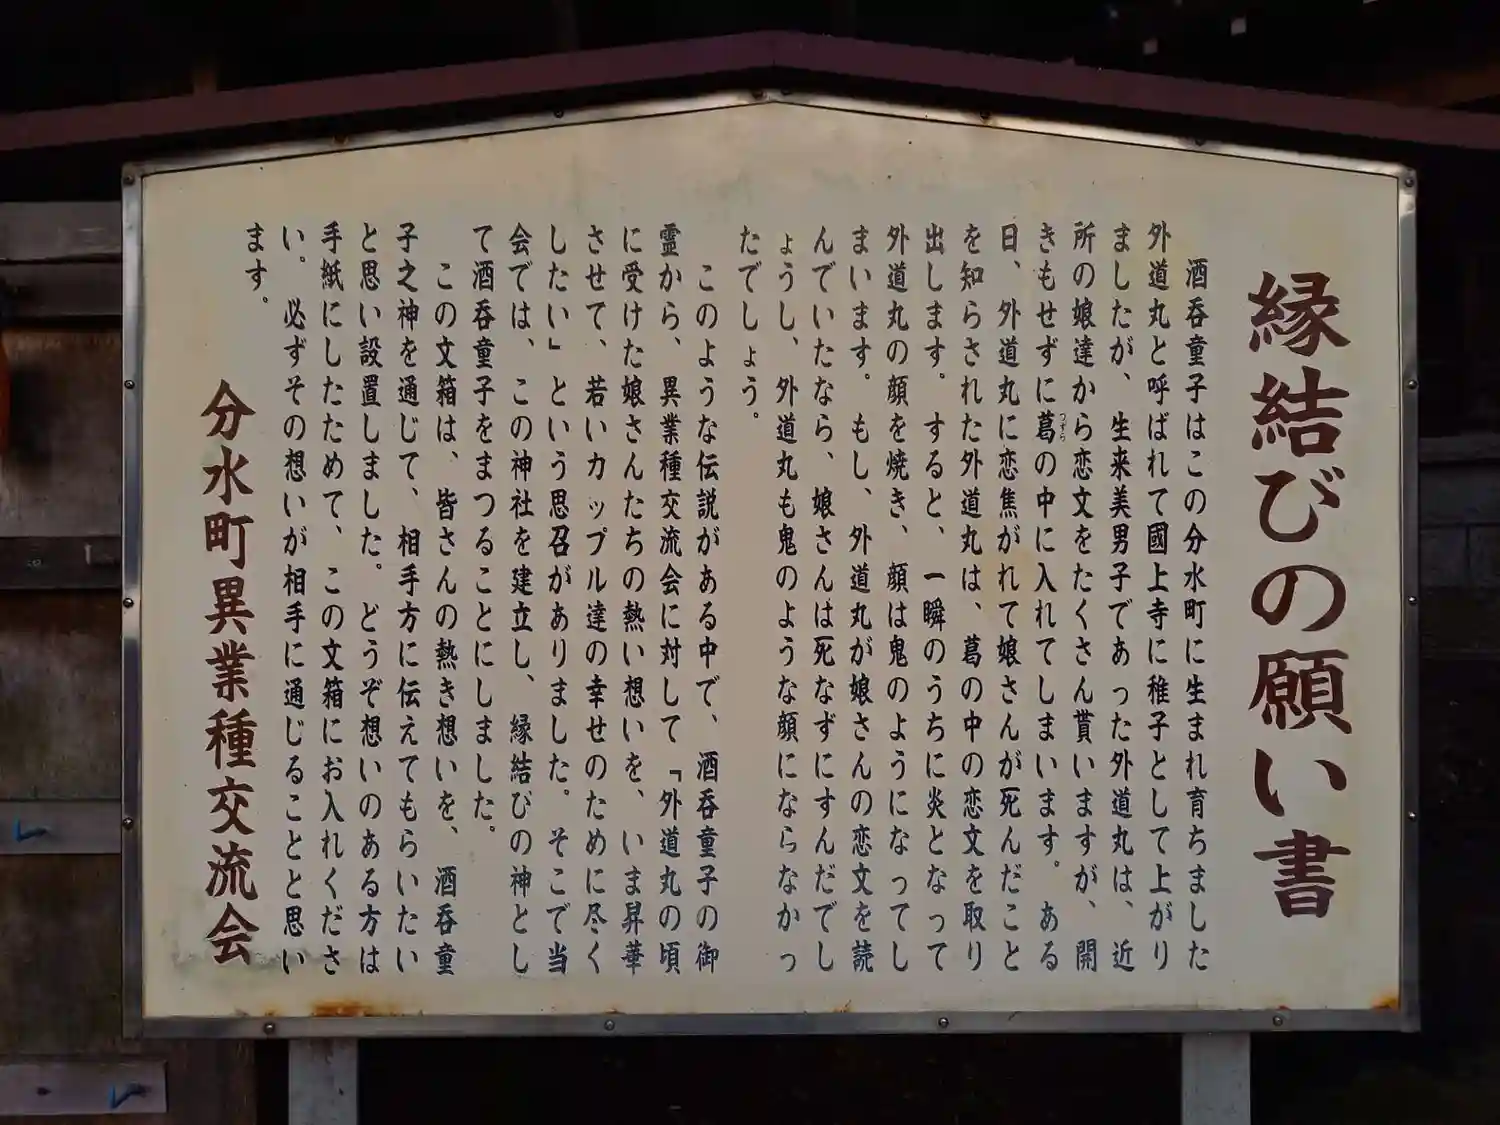 縁結びの願い書
酒呑童子はこの分水町に生まれ育ちました
外道丸と呼ばれて國上寺に稚子として上がり
ましたが、生来美男子であった外道丸は、近
所の娘達から恋文をたくさん貰いますが、開
きもせずに葛の中に入れてしまいます。ある
つずら
日、外道丸に恋焦がれて娘さんが死んだこと
を知らされた外道丸は、葛の中の恋文を取り
出します。すると、一瞬のうちに炎となって
外道丸の顔を焼き、顔は鬼のようになってし
まいます。もし、外道丸が娘さんの恋文を読
んでいたなら、娘さんは死なずにすんだでし
ょうし、外道丸も鬼のような顔にならなかっ
たでしょう。
このような伝説がある中で、酒呑童子の御
霊から、異業種交流会に対して「外道丸の頃
に受けた娘さんたちの熱い想いを、いま昇華
させて、若いカップル達の幸せのために尽く
したい」という思召がありました。そこで当
会では、この神社を建立し、縁結びの神とし
て酒呑童子をまつることにしました。
この文箱は、皆さんの熱き想いを、酒呑童
子之神を通じて、相手方に伝えてもらいたい
と思い設置しました。どうぞ想いのある方は
手紙にしたためて、この文箱にお入れくださ
い。必ずその想いが相手に通じることと思い
ます。
分水町異業種交流会